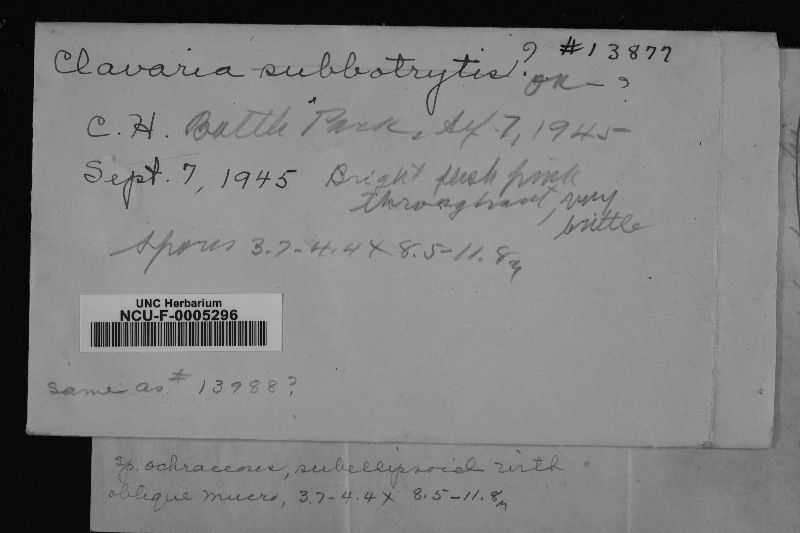 Clavaria subbotrytis? #13877
or - ?
C. H. Battle Park, Sep. 7, 1945
Sept. 7, 1945 Bright flesh pink
throughout, very
brittle
Spores 3.7-4.4 x 8.5-11.8µ
UNC Herbarium
NCU-F-0005296
same as # 13988?
sp. ochraceous, subellipsoid with
oblique mucro, 3.7-4.4 x 8.5-11.8µ